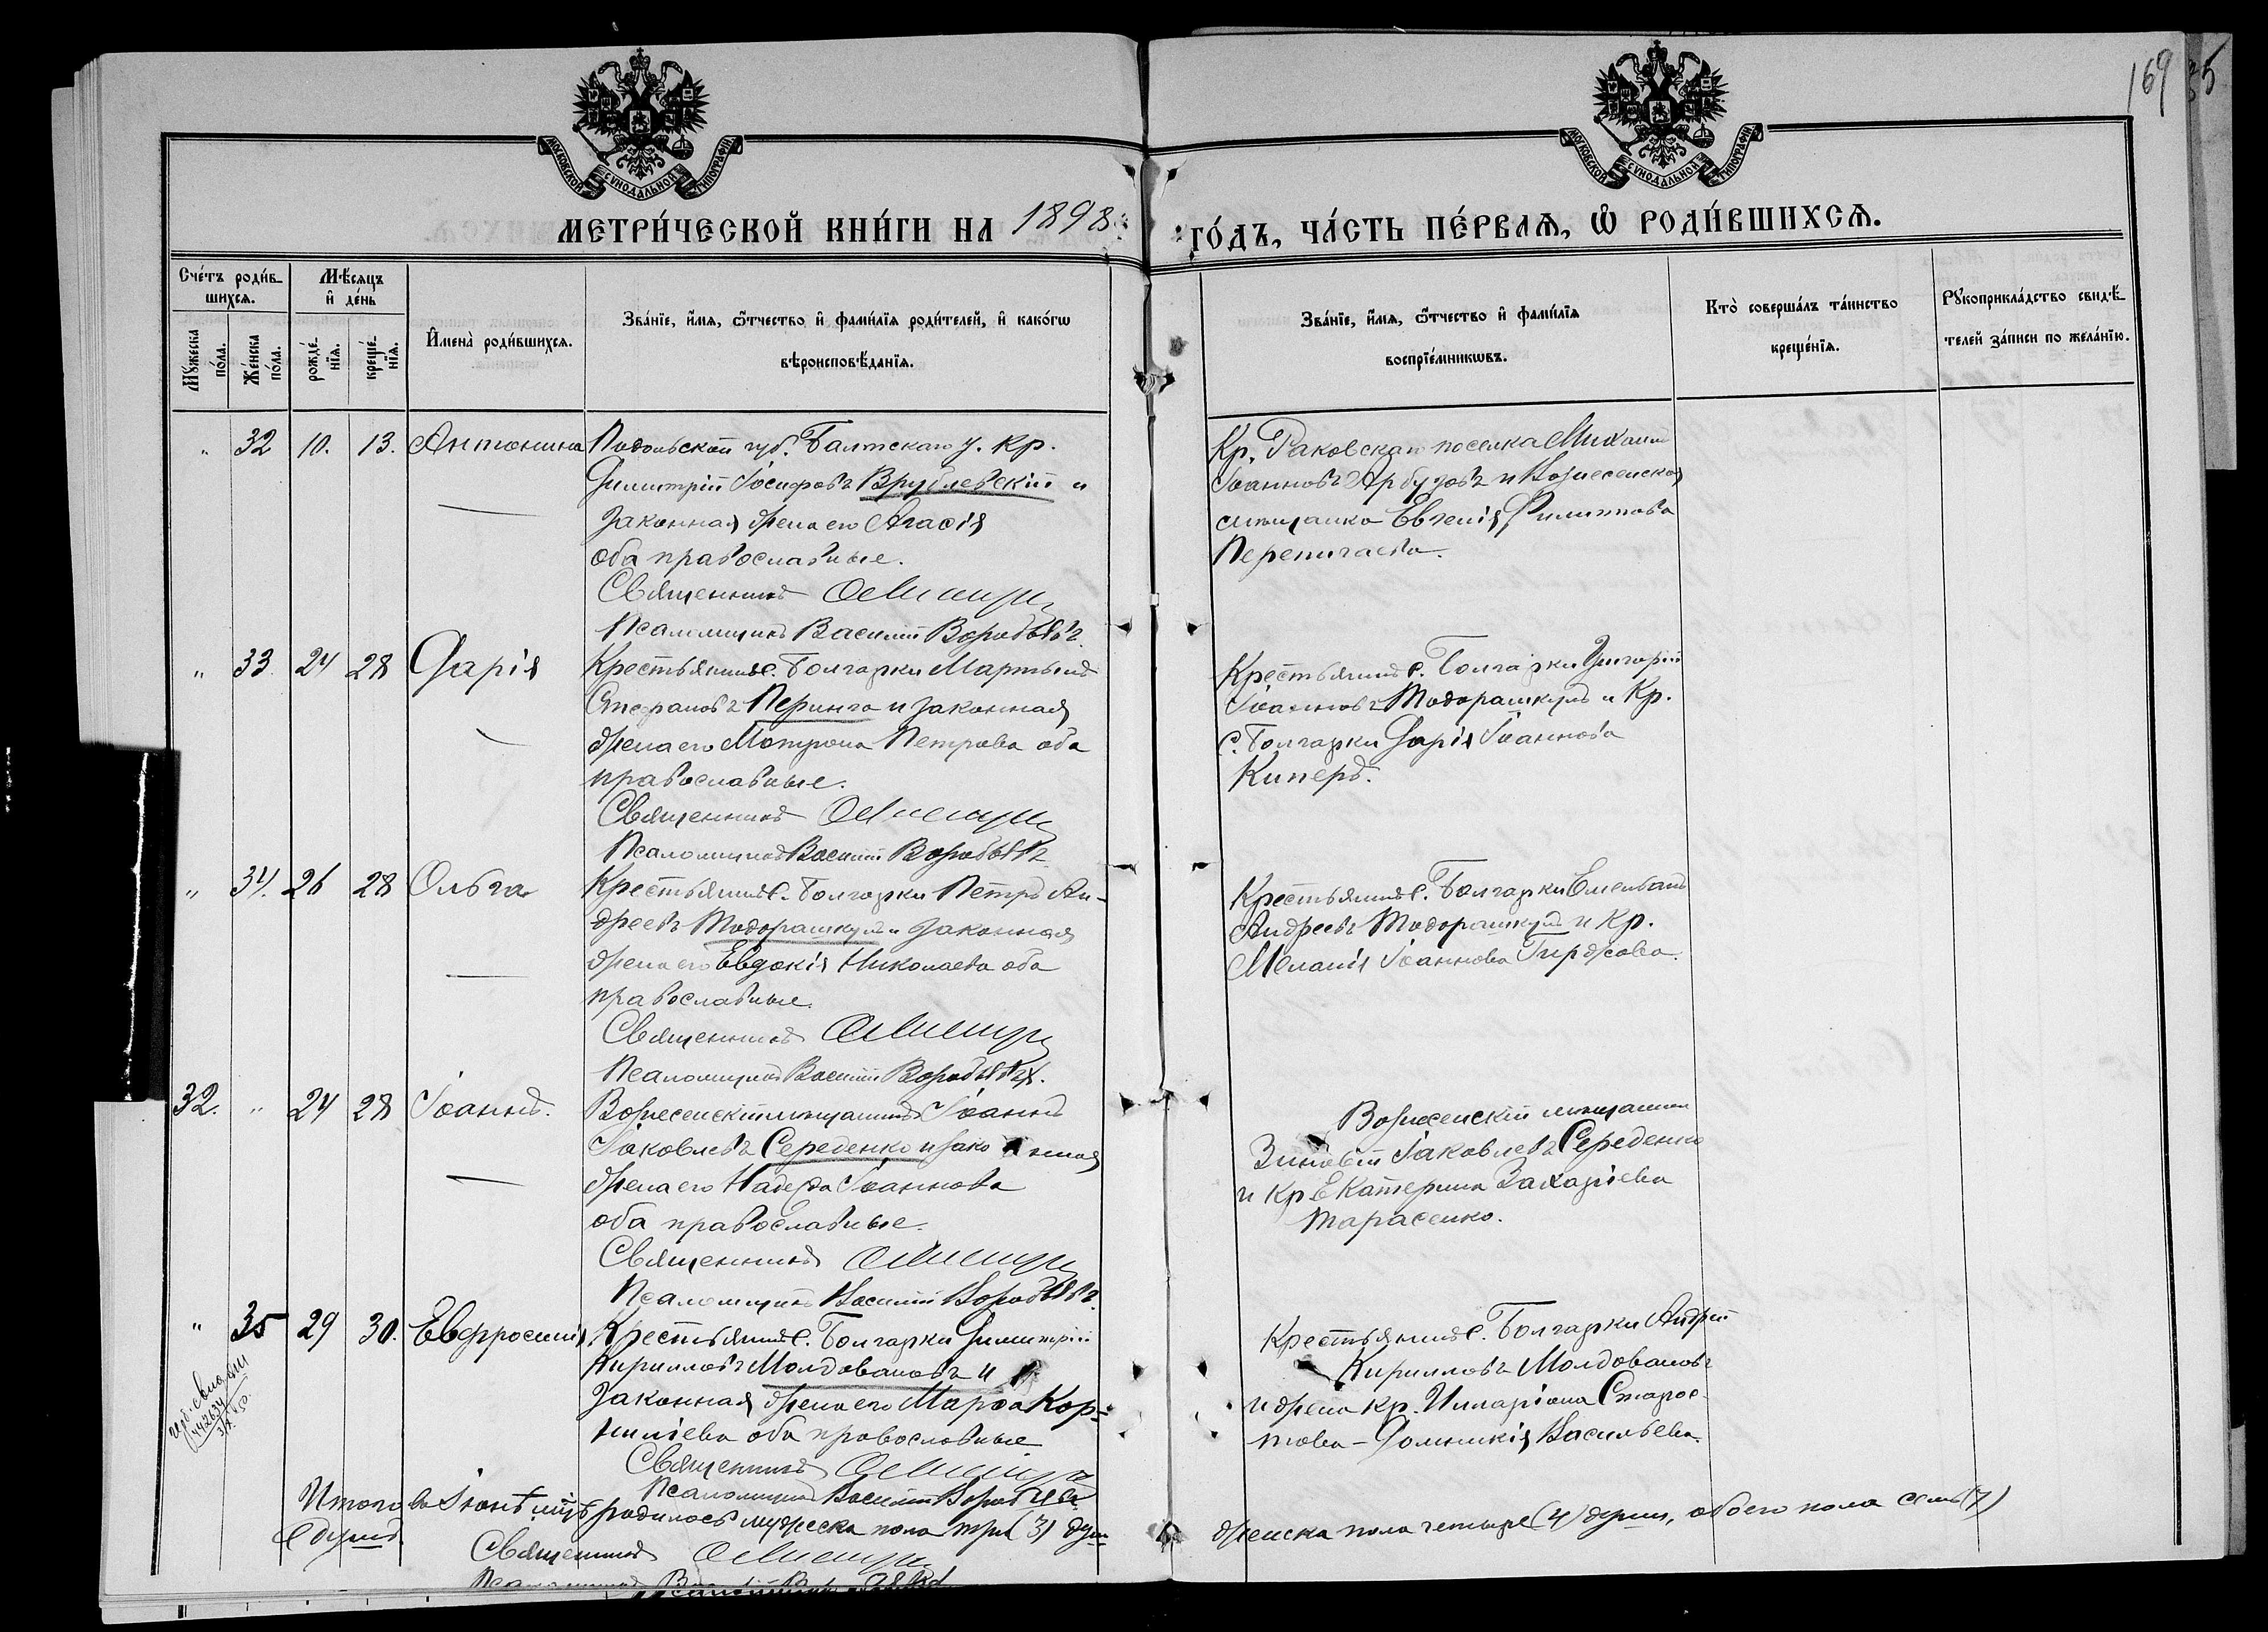 169
35
МОСКОВСКОЙ СѴНОДАЛЬНОЙ ТИПОГРАФІИ
МОСКОВСКОЙ СѴНОДАЛЬНОЙ ТИПОГРАФІИ
МЕТРИ́ЧЕСКОЙ КНИ́ГИ НА 1898
ГО́ДЪ, ЧА́СТЬ ПЕ́РВАѦ, Ѡ҆ РОДИ́ВШИХСѦ.
Сче́тъ роди́в-
шихсѧ.
Му́жеска по́ла.
Же́нска по́ла.
Мѣ́сѧцъ
и҆ де́нь
рожде́-
нїѧ.
креще́-
нїѧ.
И҆мена̀ роди́вшихсѧ.
Зва́нїе, и҆́мѧ, ѻ҆́тчество и҆ фами́лїѧ роди́телей, и҆ како́гѡ
вѣроисповѣ́данїѧ.
Зва́нїе, и҆́мѧ, ѻ҆́тчество и҆ фами́лїѧ
воспрїе́мникѡвъ.
Кто̀ соверша́лъ та́инство
креще́нїѧ.
Рꙋкоприкла́дство свидѣ́-
телей за́писи по жела́нїю.
" 32 10. 13. Антонина Подольской губ. Балтскаго у. кр.
Димитрій Іосифовъ Врублевскій и
законная жена его Агаѳія
оба православные.
Священникъ
Псаломщикъ Василій Воробьевъ
Кр. Раковскаго поселка Михаилъ
Іоанновъ Арбузовъ и Вознесенская
мѣщанка Евгенія Филиппова
" 33 24 28 Дарія Крестьянинъ с. Болгарки Мартынъ
Стефановъ Перинго и законная
жена его Матрона Петрова оба
православные.
Священникъ
Псаломщикъ Василій Воробьевъ
Крестьянинъ с. Болгарки Григорій
Іоанновъ Тодорашкулъ и кр.
с. Болгарки Дарія Іоаннова
Киперъ.
" 34. 26 28 Ольга Крестьянинъ с. Болгарки Петръ Ан-
дреевъ Тодорашкулъ и законная
жена его Евдокія Николаева оба
православные.
Священникъ
Псаломщикъ Василій Воробьевъ.
Крестьянинъ с. Болгарки Емельянъ
Андреевъ Тодорашкулъ и кр.
Меланія Іоаннова Гиржова.
32. " 24 28 Іоаннъ. Вознесенскій мѣщанинъ Іоаннъ
Іаковлевъ Середенко и законная
жена его Надежда Іоаннова
оба православные.
Священникъ
Псаломщикъ Василій Воробьевъ
Вознесенскій мѣщанинъ
Зиновій Іаковлевъ Середенко
и кр. Екатерина Захаріева
Тарасенко.
" 35 29 30. Евфросинія Крестьянинъ с. Болгарки Димитрій
Кирилловъ Молдовановъ и
законная жена его Марѳа Кор-
ниліева оба православные
Священникъ
Псаломщикъ Василій Воробьевъ
Крестьянинъ с. Болгарки Андрей
Кирилловъ Молдовановъ
и жена кр. Иларіона Старос-
това - Домникія Васильева.
Итого въ Іюнѣ мцѣ родилось мужеска пола три (3) душ
женска пола четыре (4) души, обоего пола семь (7)
душъ.
Священникъ
Псаломщикъ